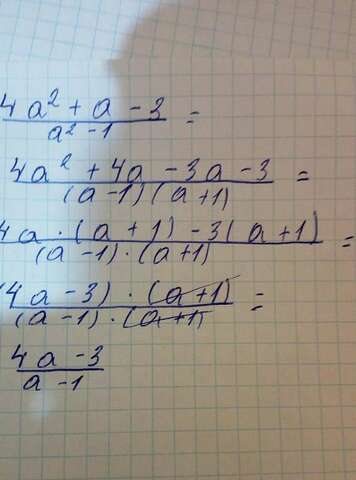 4a² + a - 3
a² - 1 =
4a² + 4a - 3a - 3
(a - 1)(a + 1) =
4a · (a + 1) - 3(a + 1)
(a - 1) · (a + 1) =
(4a - 3) · (a + 1)
(a - 1) · (a + 1) =
4a - 3
a - 1